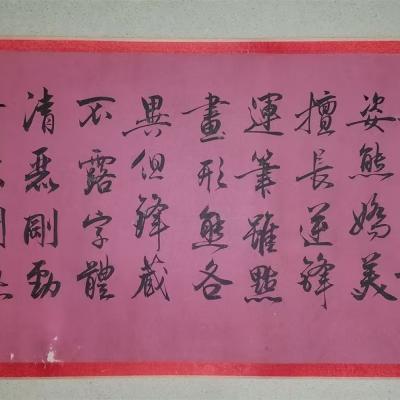 姿態嬌美
擅長逆鋒
運筆雖點
畫形態各
異但鋒藏
不露字體
清麗剛勁